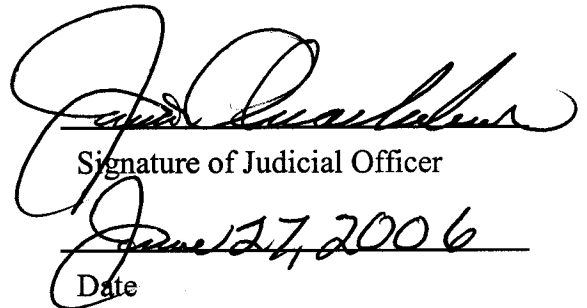 Signature of Judicial Officer
June 27, 2006
Date